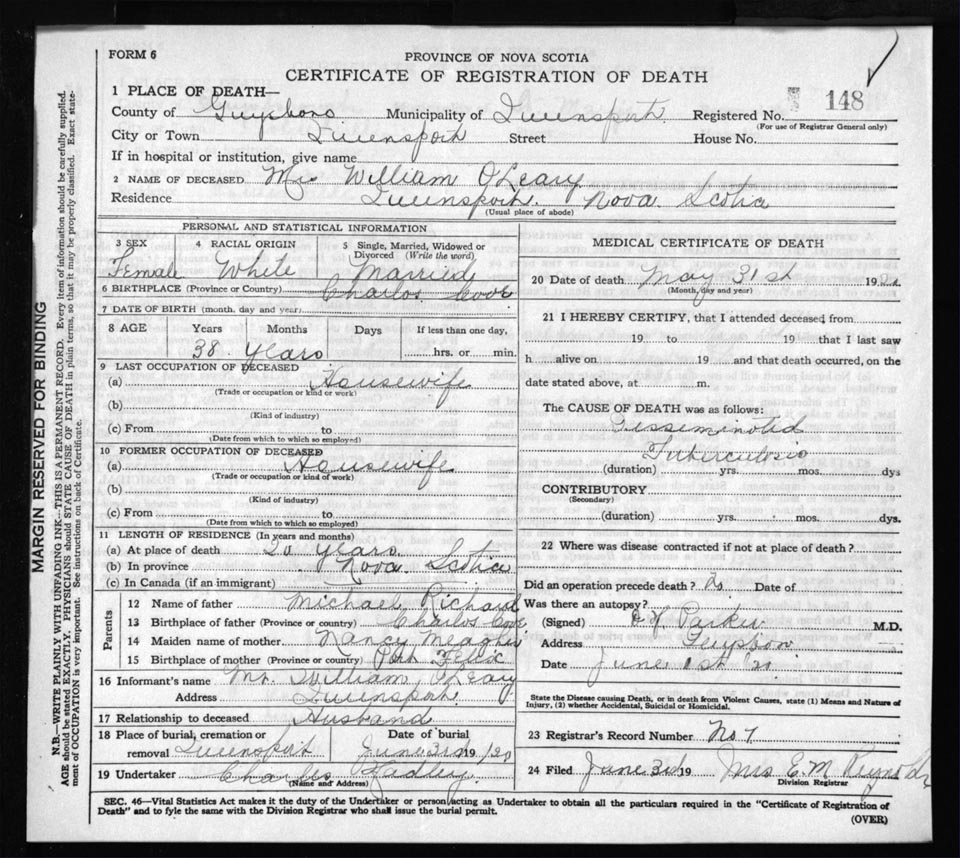 FORM 6
PROVINCE OF NOVA SCOTIA
CERTIFICATE OF REGISTRATION OF DEATH
1 PLACE OF DEATH—
County of Guysboro Municipality of Queensport Registered No. 148
(For use of Registrar General only)
City or Town Queensport Street House No.
If in hospital or institution, give name
2 NAME OF DECEASED Mrs William O'Leary
Residence Queensport. Nova Scotia
(Usual place of abode)
PERSONAL AND STATISTICAL INFORMATION
3 SEX 4 RACIAL ORIGIN 5 Single, Married, Widowed or Divorced (Write the word)
Female White Married
6 BIRTHPLACE (Province or Country) Charlos Cove
7 DATE OF BIRTH (month, day and year)
8 AGE Years Months Days If less than one day,
38 years hrs. or min.
9 LAST OCCUPATION OF DECEASED
(a) Housewife
(Trade or occupation or kind or work)
(b)
(Kind of industry)
(c) From to
(Date from which to which so employed)
10 FORMER OCCUPATION OF DECEASED
(a) Housewife
(Trade or occupation or kind of work)
(b)
(Kind of industry)
(c) From to
(Date from which to which so employed)
11 LENGTH OF RESIDENCE (In years and months)
(a) At place of death 20 years
(b) In province Nova Scotia
(c) In Canada (if an immigrant)
Parents
12 Name of father Michael Richard
13 Birthplace of father (Province or country) Charlos Cove
14 Maiden name of mother Nancy Meagher
15 Birthplace of mother (Province or country) Port Felix
16 Informant's name Mr. William O'Leary
Address Queensport
17 Relationship to deceased Husband
18 Place of burial, cremation or removal Queensport Date of burial June 19
19 Undertaker Charles Hadley
(Name and Address)
MEDICAL CERTIFICATE OF DEATH
20 Date of death May 31st 19
(Month, day and year)
21 I HEREBY CERTIFY, that I attended deceased from
19 to 19 that I last saw
h alive on 19 and that death occurred, on the
date stated above, at m.
The CAUSE OF DEATH was as follows:
Disseminated
Tuberculosis
(duration) yrs. mos. dys
CONTRIBUTORY
(Secondary)
(duration) yrs. mos. dys.
22 Where was disease contracted if not at place of death?
Did an operation precede death? Date of
Was there an autopsy?
(Signed) Parker M.D.
Address
Date June 1st
State the Disease causing Death, or in death from Violent Causes, state (1) Means and Nature of
Injury, (2) whether Accidental, Suicidal or Homicidal.
23 Registrar's Record Number No 7
24 Filed June 3rd 19 Mrs E. M. Reynolds
Division Registrar
SEC. 46—Vital Statistics Act makes it the duty of the Undertaker or person acting as Undertaker to obtain all the particulars required in the "Certificate of Registration of
Death" and to fyle the same with the Division Registrar who shall issue the burial permit.
(OVER)
MARGIN RESERVED FOR BINDING
N.B.—WRITE PLAINLY WITH UNFADING INK—THIS IS A PERMANENT RECORD. Every item of information should be carefully supplied.
AGE should be stated EXACTLY. PHYSICIANS should STATE CAUSE OF DEATH in plain terms, so that it may be properly classified. Exact statement
of OCCUPATION is very important. See instructions on back of Certificate.